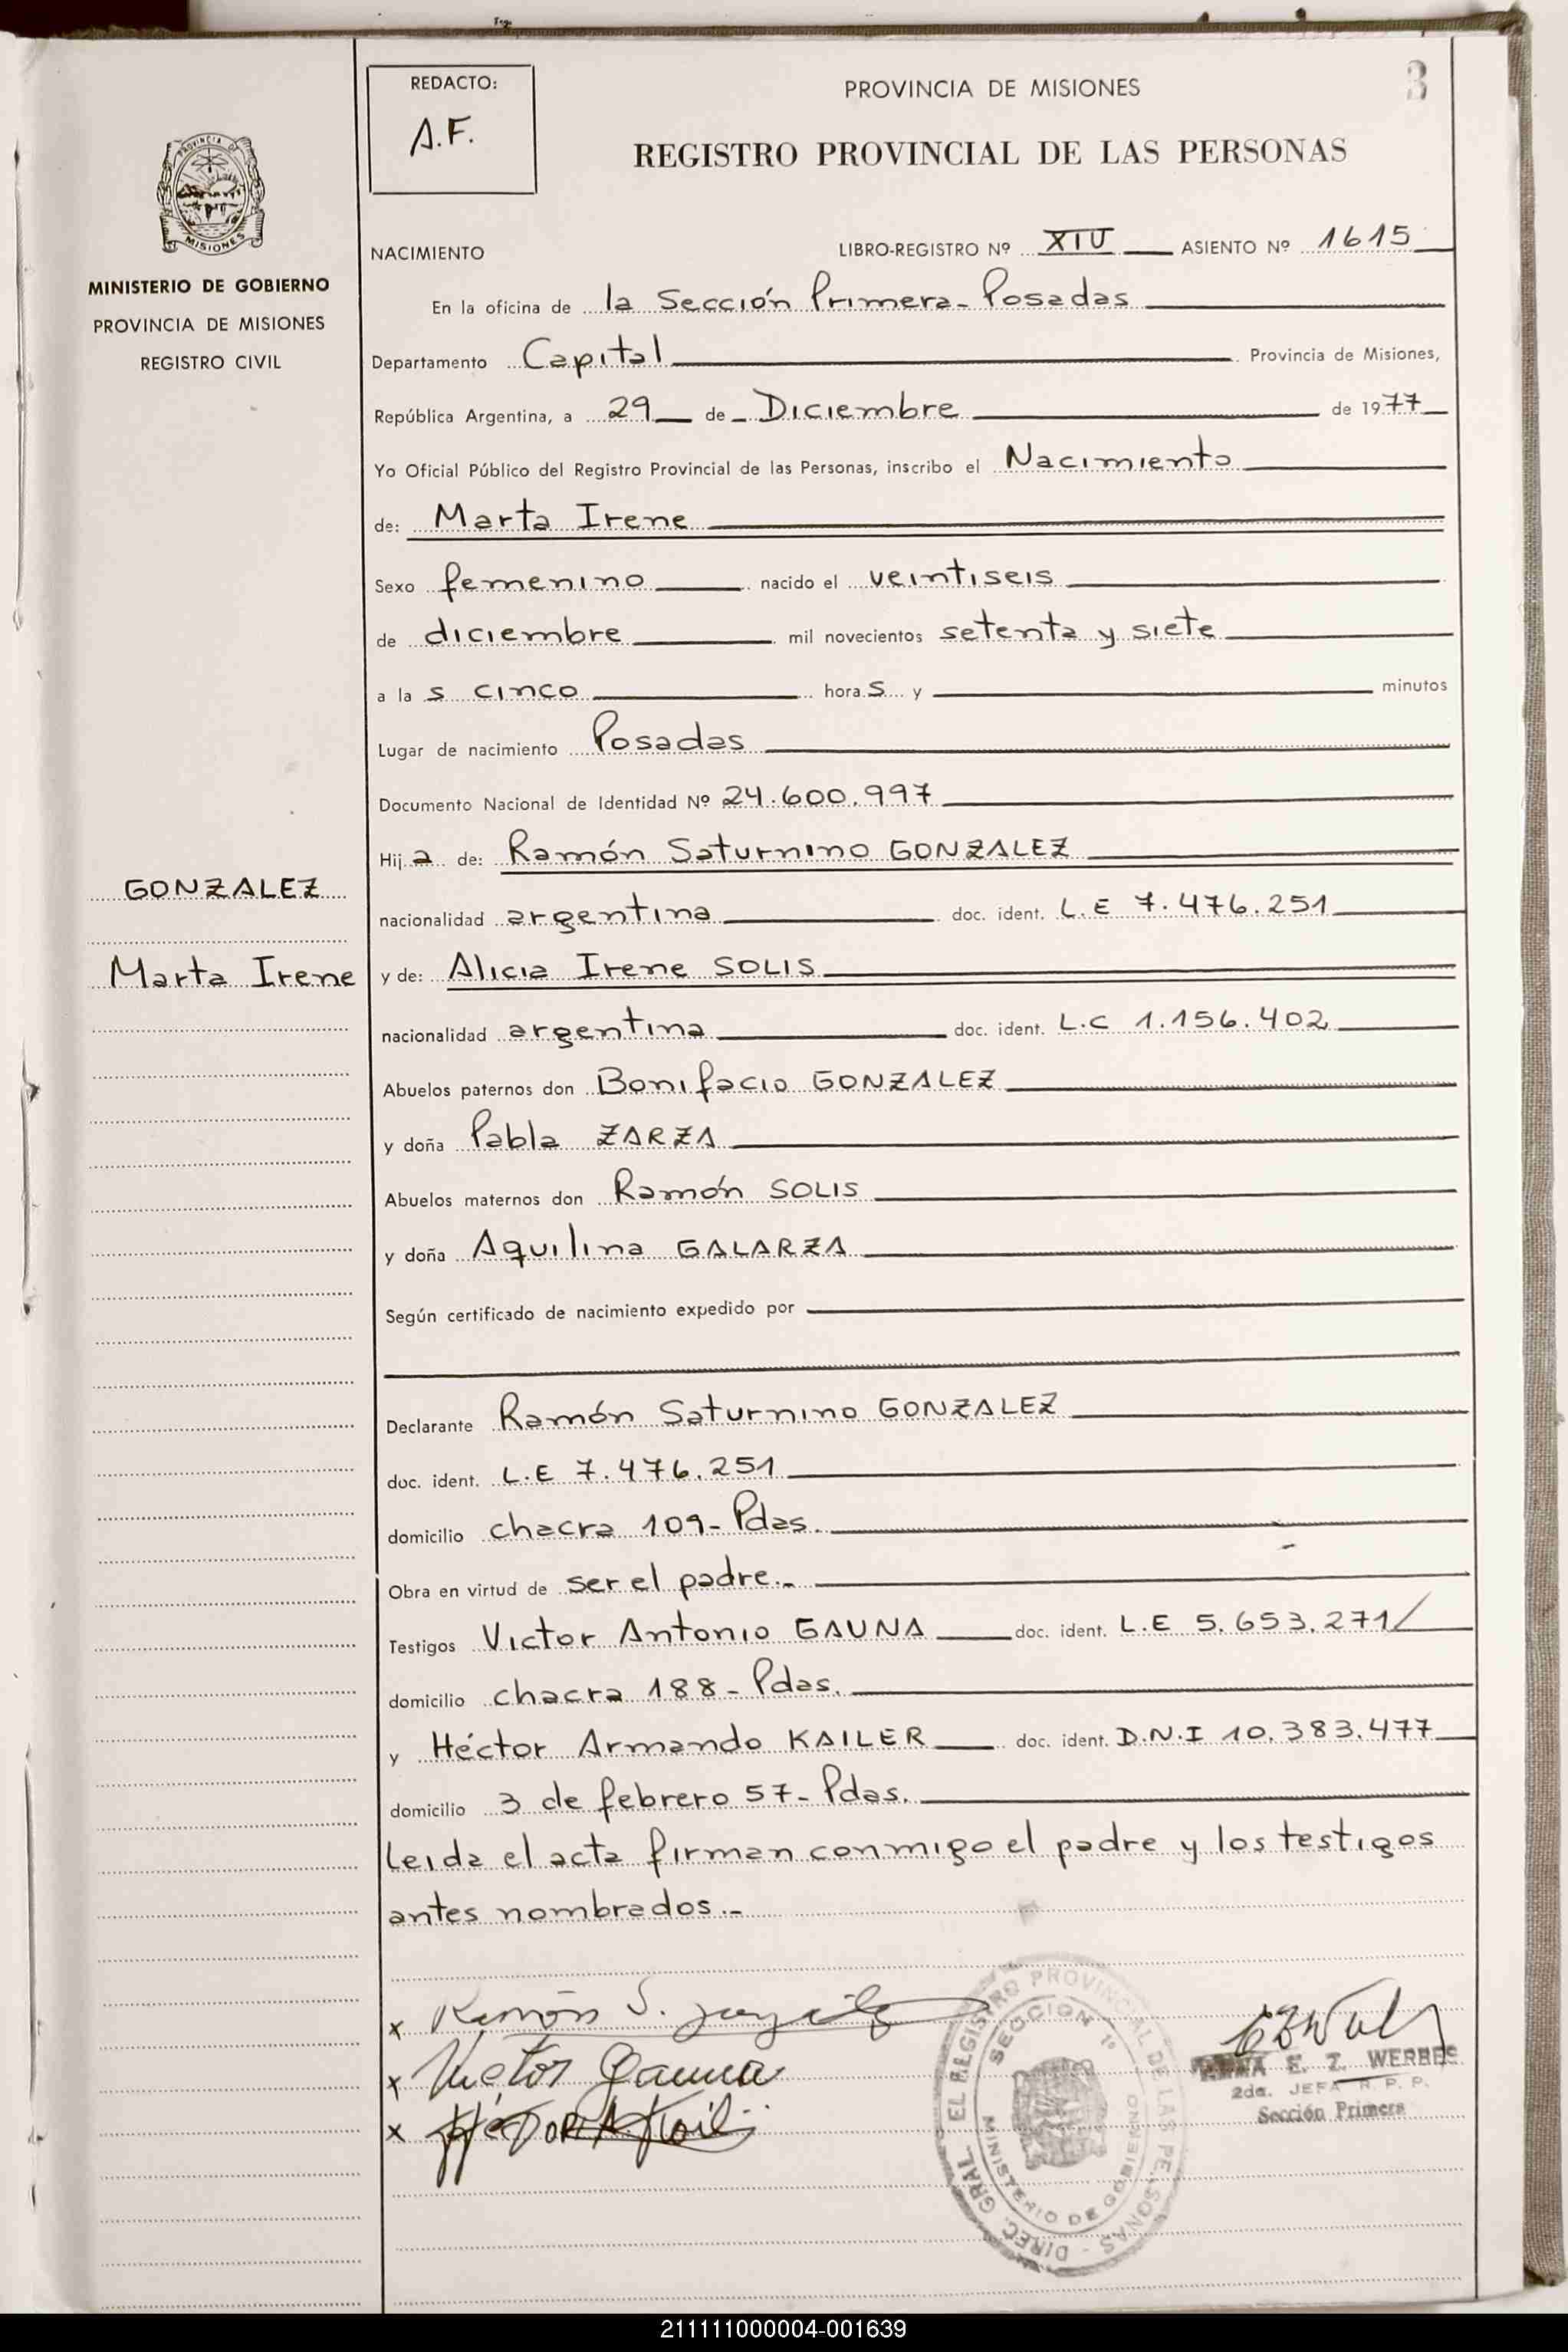 REDACTO:
A.F.
PROVINCIA DE MISIONES
3
REGISTRO PROVINCIAL DE LAS PERSONAS
PROVINCIA DE
MISIONES
MINISTERIO DE GOBIERNO
PROVINCIA DE MISIONES
REGISTRO CIVIL
NACIMIENTO LIBRO-REGISTRO Nº XIV ASIENTO Nº 1615
En la oficina de la Sección Primera- Posadas
Departamento Capital Provincia de Misiones,
República Argentina, a 29 de Diciembre de 1977
Yo Oficial Público del Registro Provincial de las Personas, inscribo el Nacimiento
de: Marta Irene
Sexo femenino nacido el veintiseis
de diciembre mil novecientos setenta y siete
a la s cinco hora s y minutos
Lugar de nacimiento Posadas
Documento Nacional de Identidad Nº 24.600.997
Hij a de: Ramón Saturnino GONZALEZ
GONZALEZ
nacionalidad argentina doc. ident. L.E 7.476.251
Marta Irene
y de: Alicia Irene SOLIS
nacionalidad argentina doc. ident. L.C 1.156.402
Abuelos paternos don Bonifacio GONZALEZ
y doña Pabla ZARZA
Abuelos maternos don Ramón SOLIS
y doña Aquilina GALARZA
Según certificado de nacimiento expedido por
Declarante Ramón Saturnino GONZALEZ
doc. ident. L.E 7.476.251
domicilio chacra 109- Pdas.
Obra en virtud de ser el padre.-
Testigos Victor Antonio GAUNA doc. ident. L.E 5.653.271/
domicilio chacra 188- Pdas.
y Héctor Armando KAILER doc. ident. D.N.I 10.383.477
domicilio 3 de febrero 57- Pdas.
Leida el acta firman conmigo el padre y los testigos
antes nombrados.-
x Ramón S. Gonzalez
x Victor Gauna
x HéCTOR A. Kail
DIREC. GRAL. EL REGISTRO PROVINCIAL DE LAS PERSONAS -
SECCION 1º
MINISTERIO DE GOBIERNO
E. Z. WERBES
2da. JEFA R. P. P.
Sección Primera
211111000004-001639